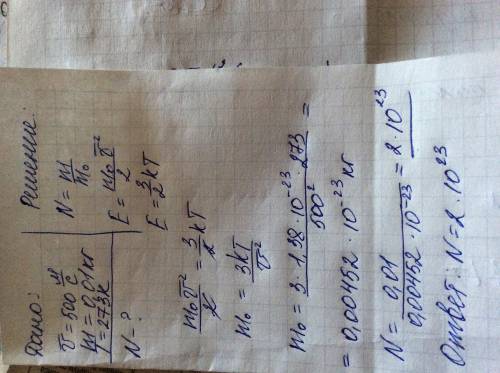 Дано:
v̅ = 500 м/с
m = 0,01 кг
T = 273 К
N - ?
Решение:
N = m/m₀
E = m₀v̅²/2
E = 3/2 kT
m₀v̅²/2 = 3/2 kT
m₀ = 3kT/v̅²
m₀ = 3 · 1,38 · 10⁻²³ · 273/500² =
= 0,00452 · 10⁻²³ кг
N = 0,01/0,00452 · 10⁻²³ = 2 · 10²³
Ответ: N = 2 · 10²³